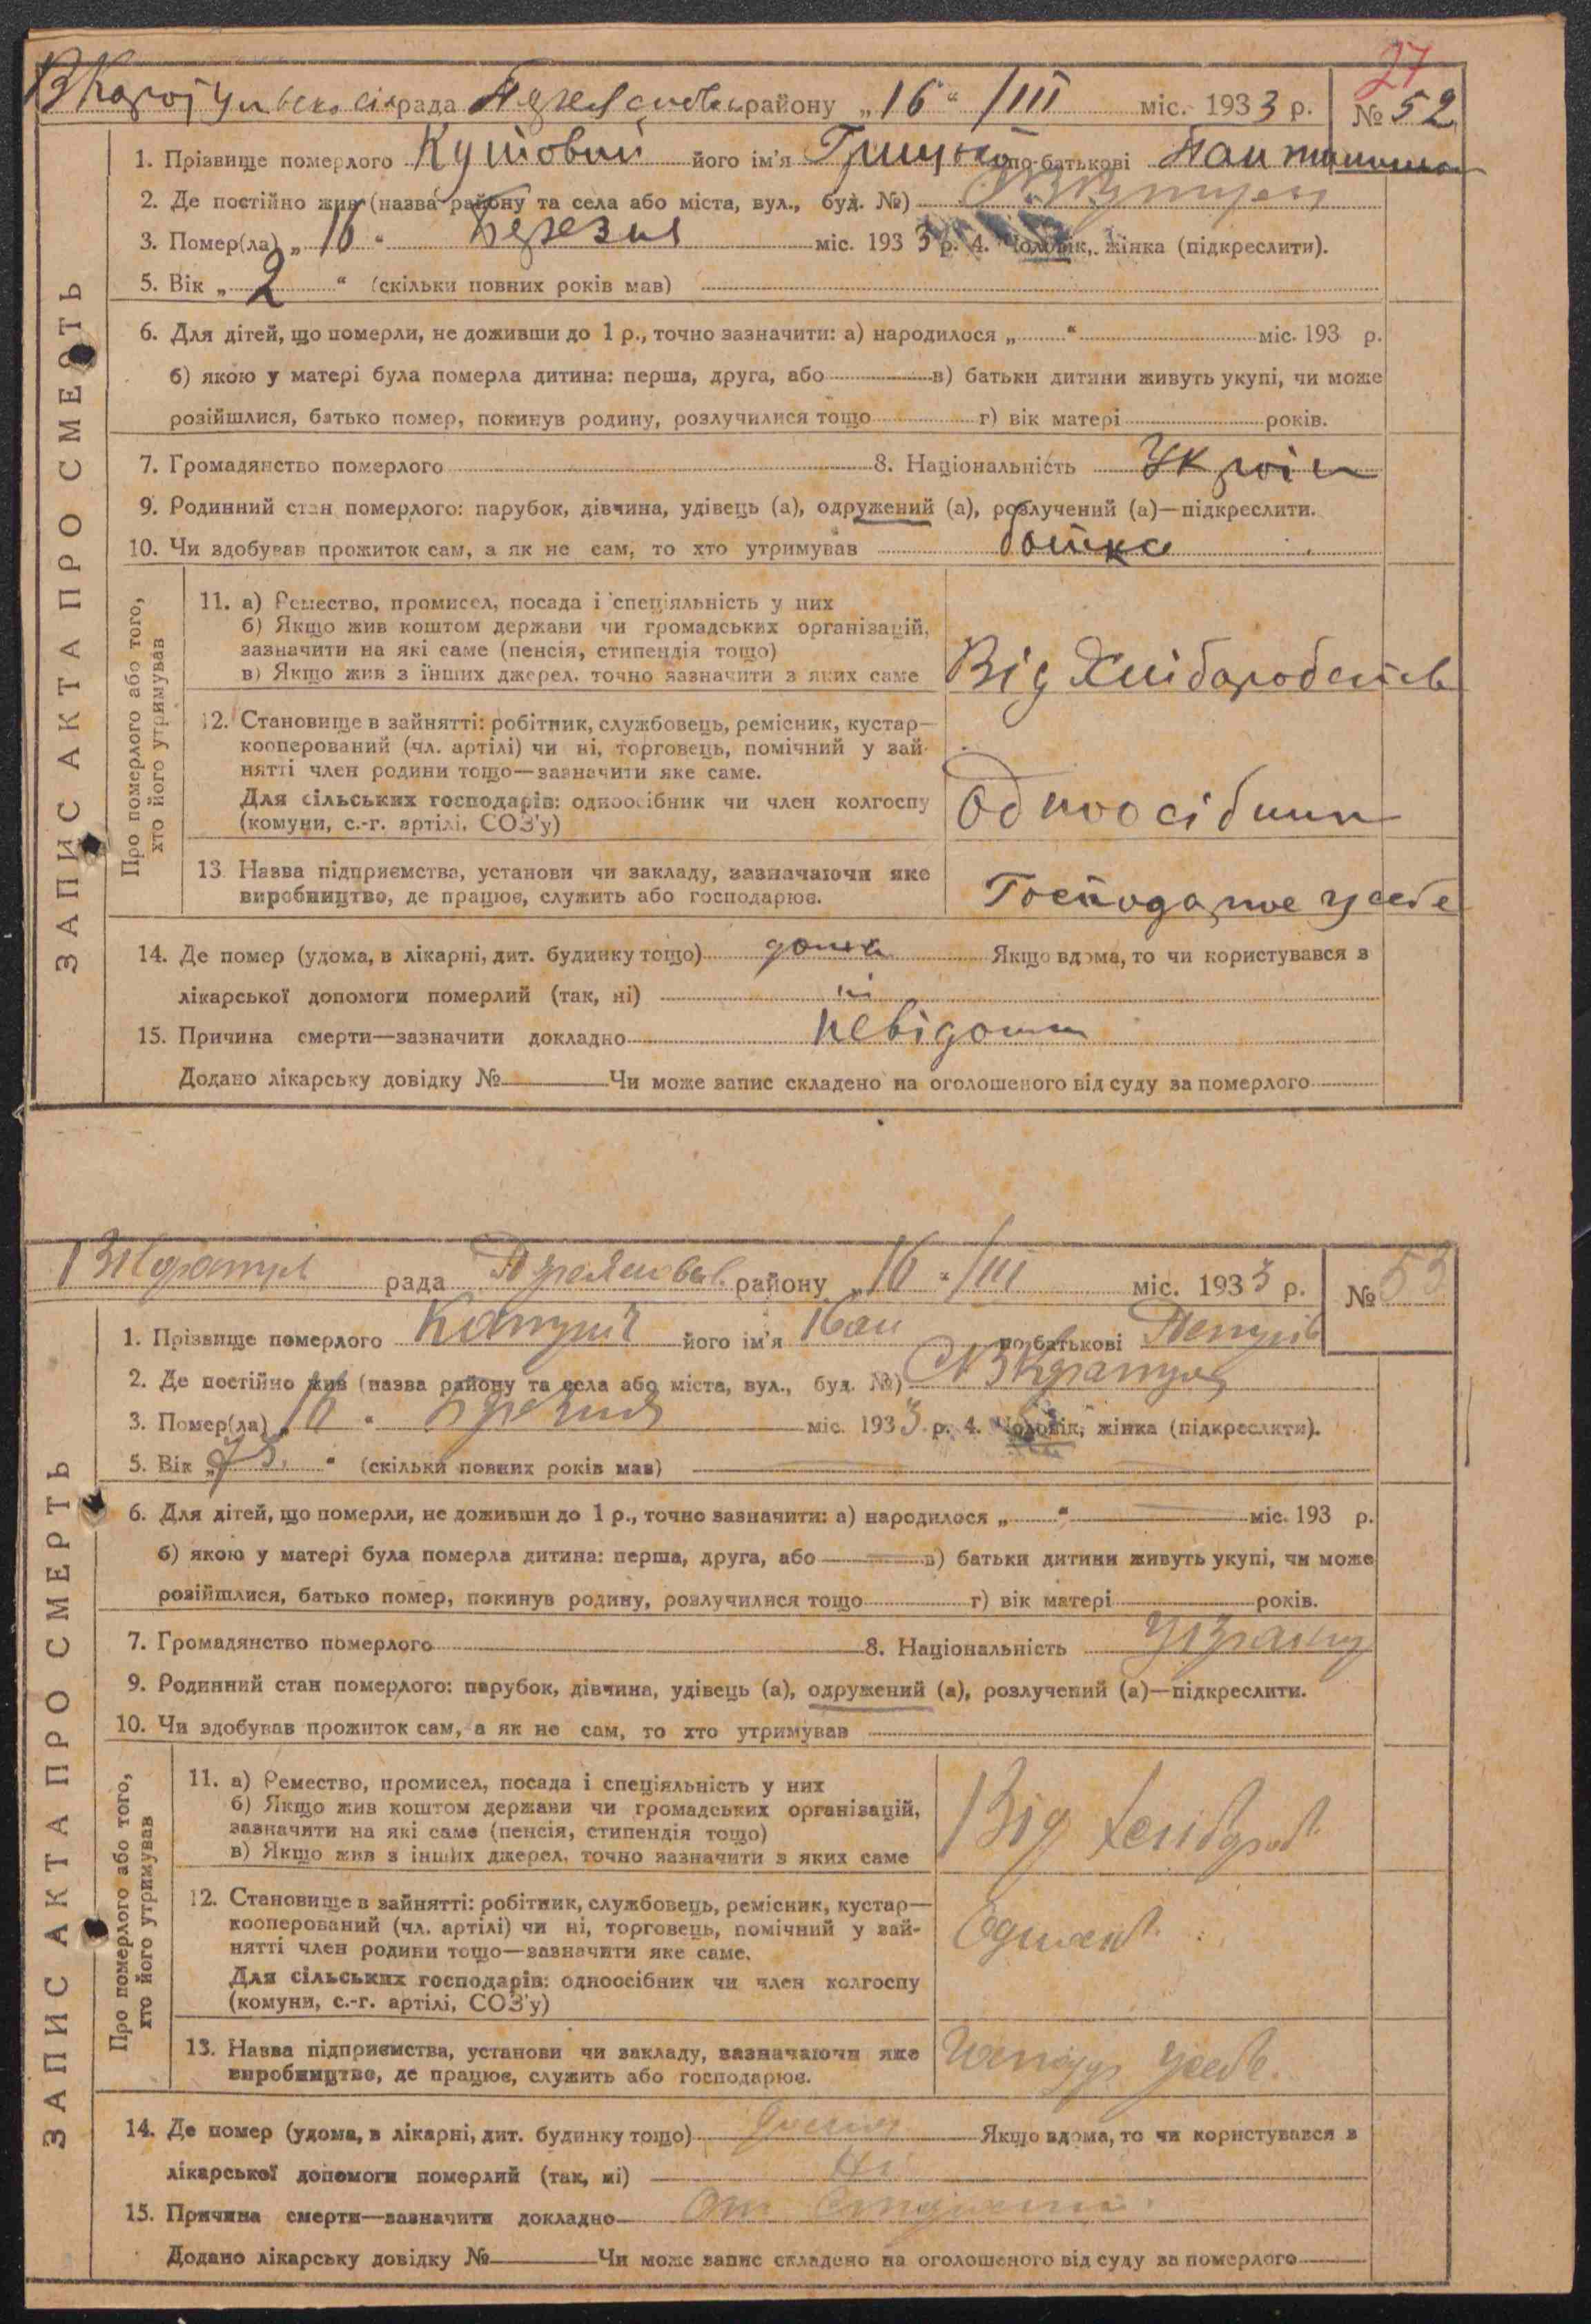 27
рада району „16“ /III міс. 1933 р. № 52
1. Прізвище померлого Кутовий його ім'я Грицько по-батькові
2. Де постійно жив (назва району та села або міста, вул., буд. №)
3. Помер(ла) „16“ Березня міс. 1933 р. 4. Чоловік, жінка (підкреслити).
5. Вік „2“ (скільки повних років мав)
6. Для дітей, що померли, не доживши до 1 р., точно зазначити: а) народилося „ “ міс. 193 р.
б) якою у матері була померла дитина: перша, друга, або в) батьки дитини живуть укупі, чи може
розійшлися, батько помер, покинув родину, розлучилися тощо г) вік матері років.
7. Громадянство померлого 8. Національність Україн
9. Родинний стан померлого: парубок, дівчина, удівець (а), одружений (а), розлучений (а)—підкреслити.
10. Чи здобував прожиток сам, а як не сам, то хто утримував батько
ЗАПИС АКТА ПРО СМЕРТЬ
Про померлого або того,
хто його утримував
11. а) Ремество, промисел, посада і спеціяльність у них
б) Якщо жив коштом держави чи громадських організацій,
зазначити на які саме (пенсія, стипендія тощо)
в) Якщо жив з інших джерел, точно зазначити з яких саме
Від Хліборобства
12. Становище в зайнятті: робітник, службовець, ремісник, кустар—
кооперований (чл. артілі) чи ні, торговець, помічний у зай-
нятті член родини тощо—зазначити яке саме.
Для сільських господарів: одноосібник чи член колгоспу
(комуни, с.-г. артілі, СОЗ'у)
Одноосібник
13. Назва підприємства, установи чи закладу, зазначаючи яке
виробництво, де працює, служить або господарює.
Господарює у себе
14. Де помер (удома, в лікарні, дит. будинку тощо) дома Якщо вдома, то чи користувався з
лікарської допомоги померлий (так, ні) ні
15. Причина смерти—зазначити докладно невідома
Додано лікарську довідку № Чи може запис складено на оголошеного від суду за померлого
рада району „16“ /III міс. 1933 р. № 53
1. Прізвище померлого його ім'я Іван по батькові Петрів
2. Де постійно жив (назва району та села або міста, вул., буд. №)
3. Помер(ла) „16“ березня міс. 1933 р. 4. Чоловік, жінка (підкреслити).
5. Вік „75“ (скільки повних років мав)
6. Для дітей, що померли, не доживши до 1 р., точно зазначити: а) народилося „ “ міс. 193 р.
б) якою у матері була померла дитина: перша, друга, або в) батьки дитини живуть укупі, чи може
розійшлися, батько помер, покинув родину, розлучилися тощо г) вік матері років.
7. Громадянство померлого 8. Національність
9. Родинний стан померлого: парубок, дівчина, удівець (а), одружений (а), розлучений (а)—підкреслити.
10. Чи здобував прожиток сам, а як не сам, то хто утримував
ЗАПИС АКТА ПРО СМЕРТЬ
Про померлого або того,
хто його утримував
11. а) Ремество, промисел, посада і спеціяльність у них
б) Якщо жив коштом держави чи громадських організацій,
зазначити на які саме (пенсія, стипендія тощо)
в) Якщо жив з інших джерел, точно зазначити з яких саме
Від хлібороб
12. Становище в зайнятті: робітник, службовець, ремісник, кустар—
кооперований (чл. артілі) чи ні, торговець, помічний у зай-
нятті член родини тощо—зазначити яке саме.
Для сільських господарів: одноосібник чи член колгоспу
(комуни, с.-г. артілі, СОЗ'у)
13. Назва підприємства, установи чи закладу, зазначаючи яке
виробництво, де працює, служить або господарює.
у себе
14. Де помер (удома, в лікарні, дит. будинку тощо) дома Якщо вдома, то чи користувався з
лікарської допомоги померлий (так, ні) Ні
15. Причина смерти—зазначити докладно
Додано лікарську довідку № Чи може запис складено на оголошеного від суду за померлого